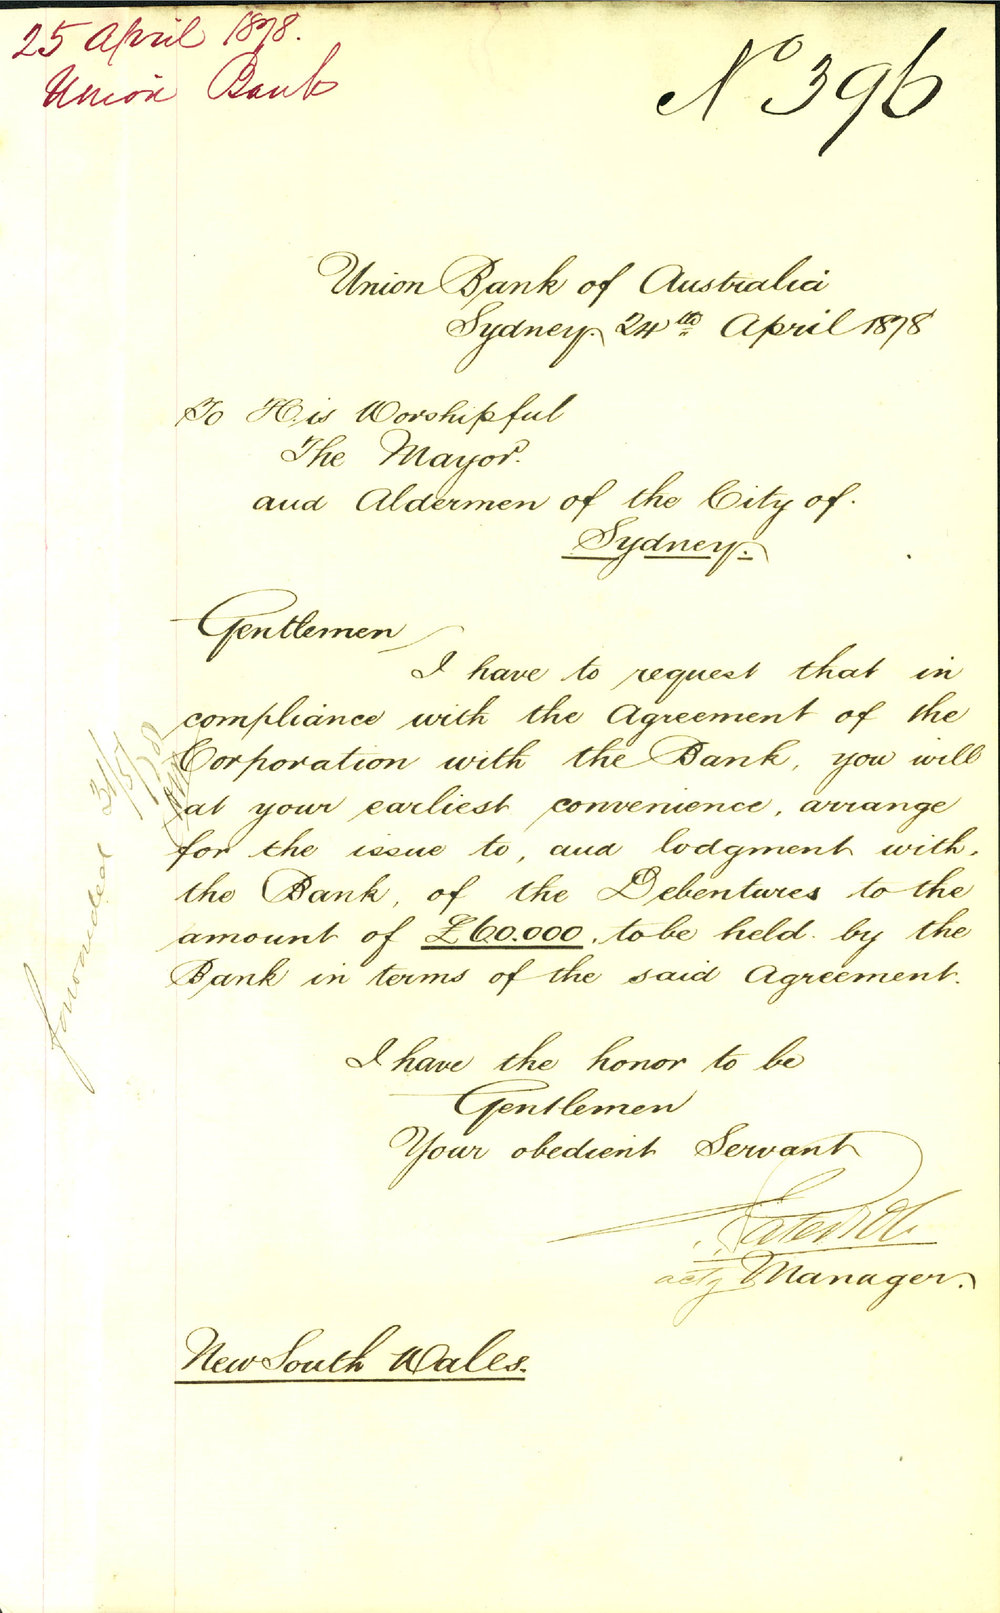 25 April 1878.
Union Bank
No 396
Union Bank of Australia
Sydney. 24th April 1878
To His Worshipful
The Mayor.
and Aldermen of the City of.
Sydney.
Gentlemen
I have to request that in
compliance with the Agreement of the
Corporation with the Bank, you will
at your earliest convenience, arrange
for the issue to, and lodgment with,
the Bank, of the Debentures to the
amount of £60.000, to be held by the
Bank in terms of the said Agreement.
I have the honor to be
Gentlemen
Your obedient Servant
actg Manager.
New South Wales.
forwarded 31/5/78